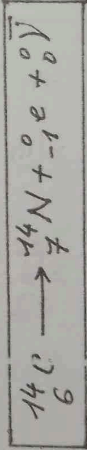 ¹⁴₆C → ¹⁴₇N + ⁰₋₁e + ⁰₀ν̄